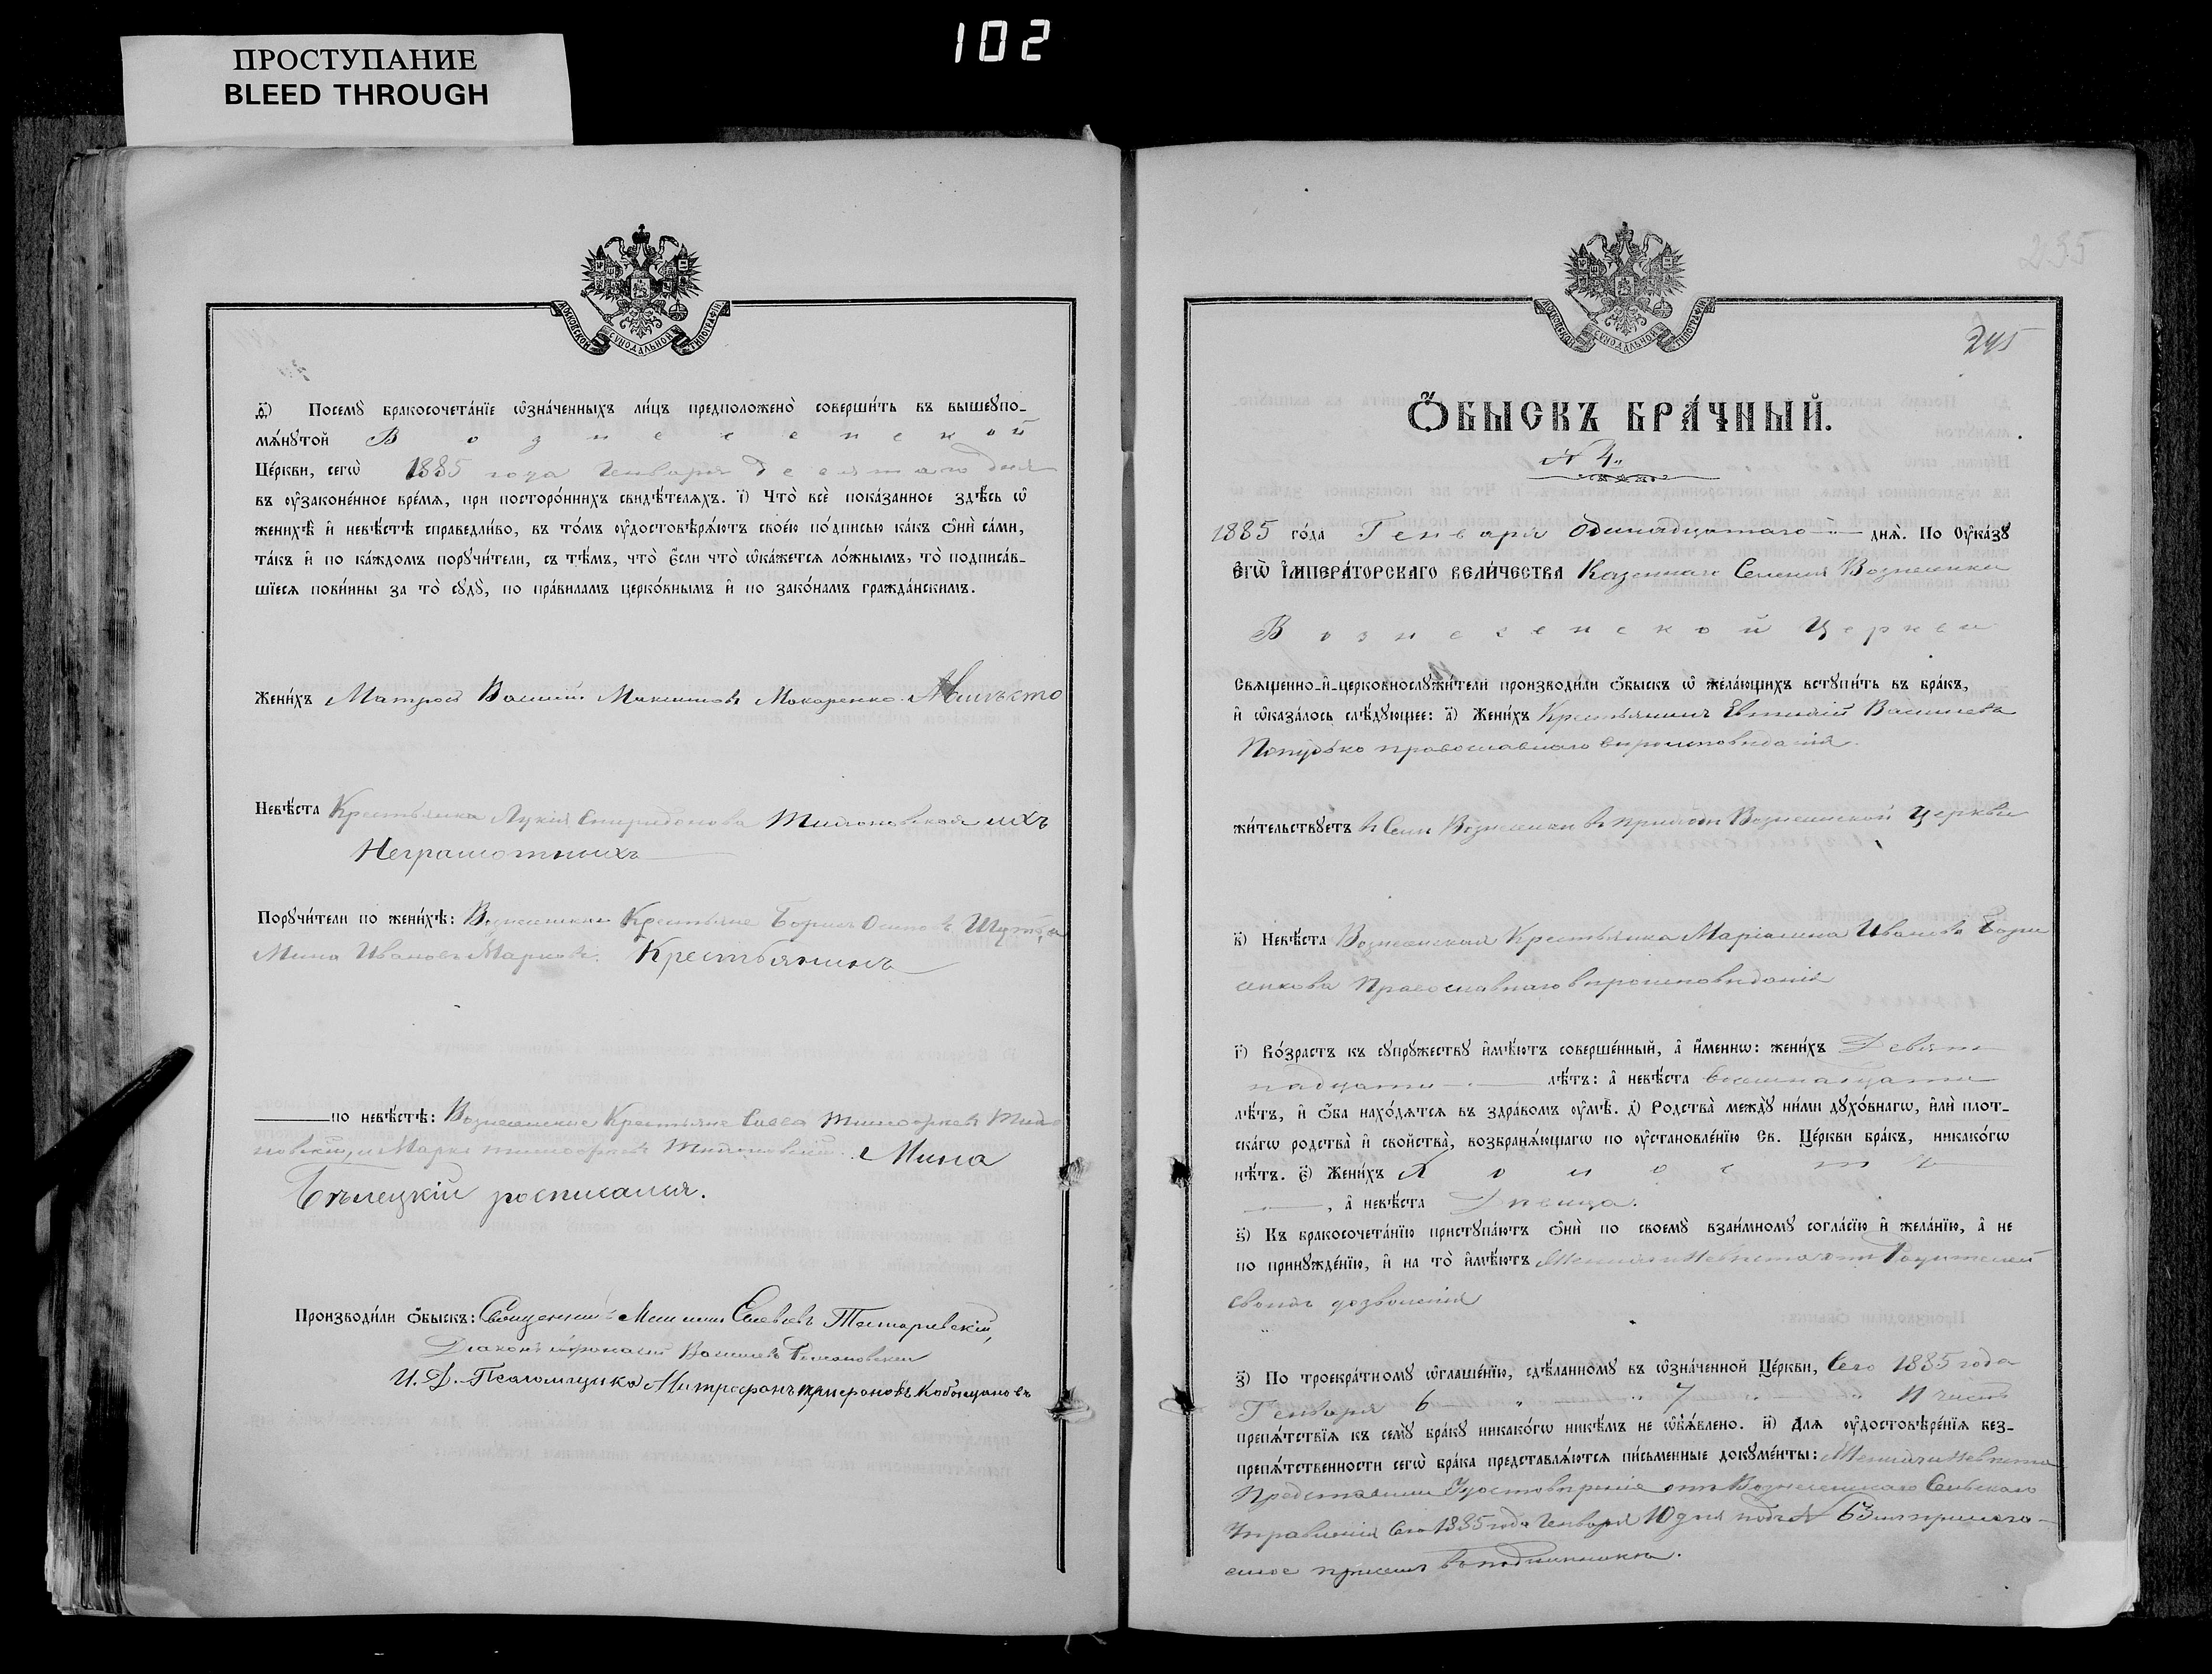 102
ПРОСТУПАНИЕ
BLEED THROUGH
МОСКОВСКОЙ СѴНОДАЛЬНОЙ ТИПОГРАФІИ
д҃і) Посемꙋ бракосочета́нїе ѡ҆зна́ченныхъ ли́цъ предположено̀ соверши́ть въ вышеꙋпо-
мѧ́нꙋтой Вознесенской
Це́ркви, сегѡ̀ 1885 года Генваря десятаго дня
въ ᲂу҆законе́нное вре́мѧ, при посторо́ннихъ свидѣ́телѧхъ. і҃) Что̀ всѐ пока́занное здѣ́сь ѡ҆
женихѣ̀ и҆ невѣ́стѣ справедли́во, въ то́мъ ᲂу҆достовѣрѧ́ютъ свое́ю по́дписью ка́къ ѻ҆нѝ са́ми,
та́къ и҆ по ка́ждомъ порꙋчи́тели, съ тѣ́мъ, что̀ є҆́сли что̀ ѡ҆ка́жетсѧ ло́жнымъ, то̀ подписа́в-
шїесѧ пови́нны за то̀ сꙋдꙋ̀, по пра́виламъ церко́внымъ и҆ по зако́намъ гражда́нскимъ.
Жени́хъ Матрос Василій Максимовъ Макаренко. А вместо
Невѣ́ста Крестьянка Лукія Спиридонова Тимоновская ихъ
Неграмотныхъ
Порꙋчи́тели по женихѣ̀: Вознесенские Крестьяне Борис Осипов
Мина Иванов Марков. Крестьянинъ
по невѣ́стѣ: Вознесенские Крестьяне Савва
Мина
Бѣлецкій росписался.
Производи́ли ѻ҆́быскъ: Священникъ
Діаконъ
И. Д. Псаломщика Митрофанъ
235
245
Ѻ҆́БЫСКЪ БРА́ЧНЫЙ.
№ 4.
1885 го́да Генваря одинадцатаго днѧ̀. По Оу҆ка́зꙋ
Є҆гѡ̀ І҆мпера́торскаго Вели́чества Казеннаго Селенія Вознесенки
Вознесенской Церкви
Свѧще́нно-и҆-церковнослꙋжи́тели производи́ли ѻ҆́быскъ ѡ҆ жела́ющихъ встꙋпи́ть въ бра́къ,
и҆ ѡ҆каза́лось слѣ́дꙋющее: а҃) Жени́хъ Крестьянинъ Евтихій Васильевъ
православнаго вероисповеданія.
жи́тельствꙋетъ в Селе Вознесенки в приходе Вознесенской Церкви
в҃) Невѣ́ста Вознесенская Крестьянка Маріамна Иванова Бори
сенкова Православнаго вероисповеданія
г҃) Во́зрастъ къ сꙋпрꙋ́жествꙋ и҆мѣ́ютъ соверше́нный, а҆ и҆́меннѡ: жени́хъ Девят
надцати лѣ́тъ: а҆ невѣ́ста восемнадцати
лѣ́тъ, и҆ ѻ҆́ба нахо́дѧтсѧ въ здра́вомъ ᲂу҆мѣ̀. д҃) Родства̀ междꙋ̀ ни́ми дꙋхо́внагѡ, и҆лѝ пло́т-
скагѡ родства̀ и҆ сво́йства, возбранѧ́ющагѡ по ᲂу҆становле́нїю Св. Це́ркви бра́къ, никако́гѡ
нѣ́тъ. є҃) Жени́хъ Холостъ
, а҆ невѣ́ста Девица.
ѕ҃) Къ бракосочета́нїю пристꙋпа́ютъ ѻ҆нѝ по своемꙋ̀ взаи́мномꙋ согла́сїю и҆ жела́нїю, а҆ не
по принꙋжде́нїю, и҆ на то̀ и҆мѣ́ютъ Жених и Невеста от Родителей
своихъ дозволенія
з҃) По троекра́тномꙋ ѡ҆глаше́нїю, сдѣ́ланномꙋ въ ѡ҆зна́ченной Це́ркви, Сего 1885 года
Генваря 6 " 7 " и 11 числъ
препѧ́тствїѧ къ семꙋ̀ бра́кꙋ никако́гѡ никѣ́мъ не ѡ҆бъѧ́влено. и҃) Длѧ ᲂу҆достовѣре́нїѧ без-
препѧ́тственности сегѡ̀ бра́ка представлѧ́ютсѧ пи́сьменные докꙋме́нты: Жених и Невеста
Представили Удостоверение от Вознесенскаго Сельскаго
Управления Сего 1885 года Генваря 10 дня под № 63
в подлиннике.